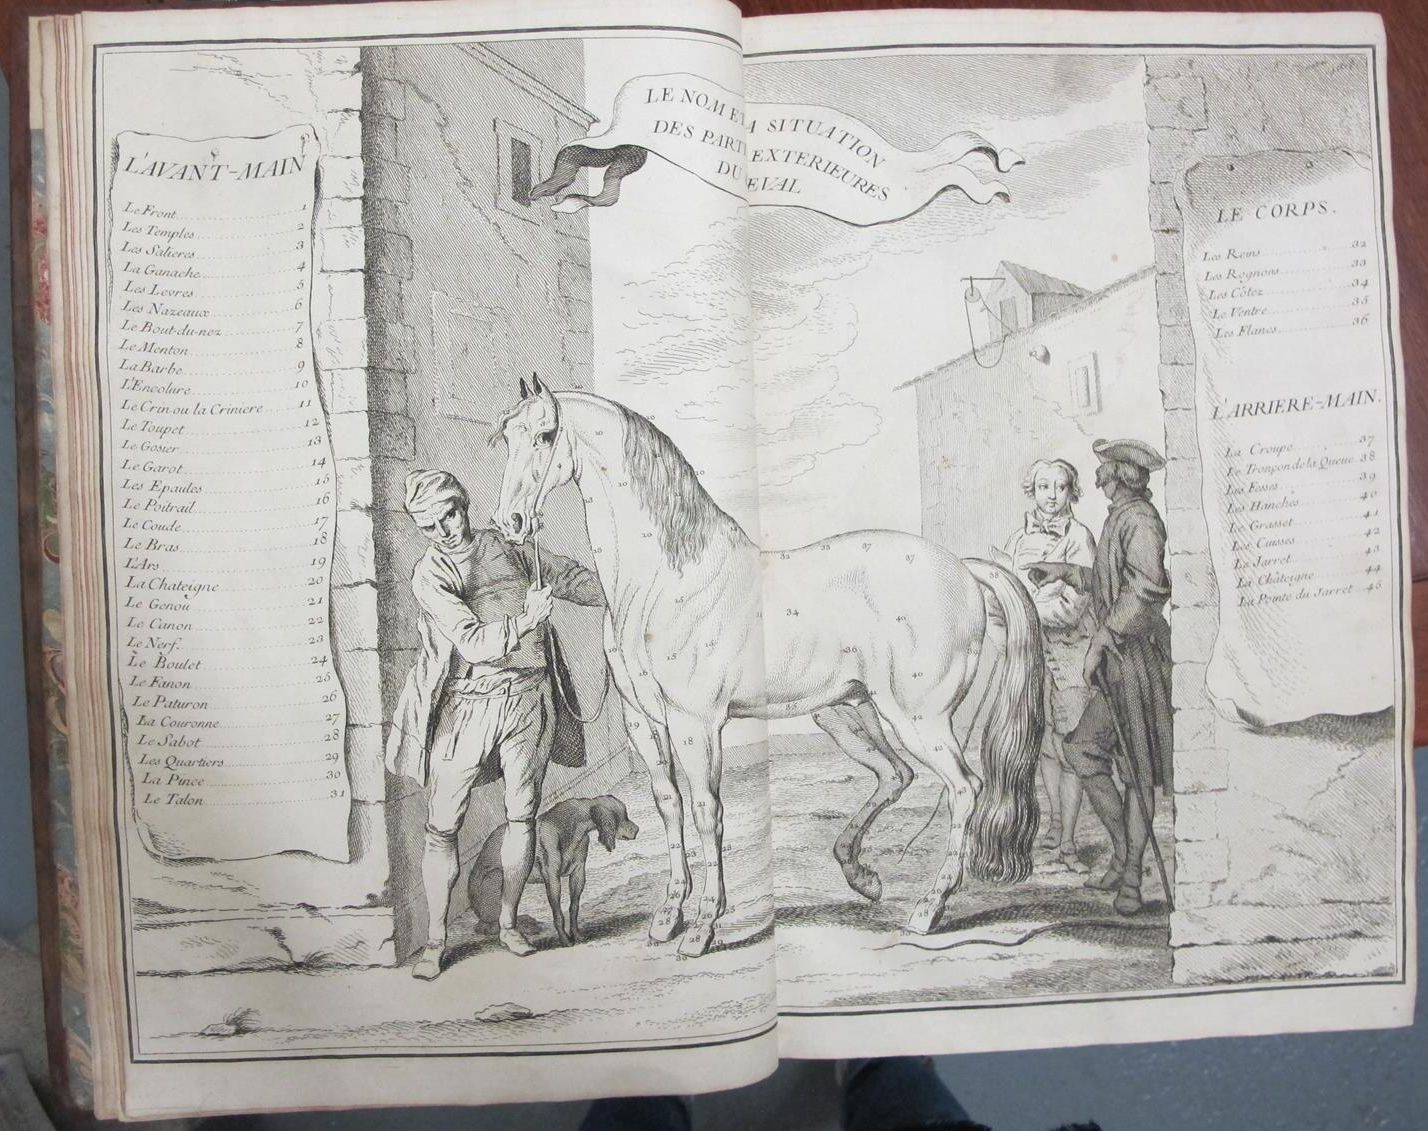 LE NOM E LA SITUATION
DES PARTI EXTERIEURES
DU EVAL
L'AVANT-MAIN
Le Front 1
Les Temples 2
Les Salieres 3
La Ganache 4
Les Levres 5
Les Nazeaux 6
Le Bout-du-nez 7
Le Menton 8
La Barbe 9
L'Encolure 10
Le Crin ou la Criniere 11
Le Toupet 12
Le Gosier 13
Le Garot 14
Les Epaules 15
Le Poitrail 16
Le Coude 17
Le Bras 18
L'Ars 19
La Chateigne 20
Le Genoü 21
Le Canon 22
Le Nerf. 23
Le Boulet 24
Le Fanon 25
Le Paturon 26
La Couronne 27
Le Sabot 28
Les Quartiers 29
La Pince 30
Le Talon 31
LE CORPS.
Les Reins 32
Les Rognons 33
Les Côtez 34
Le Ventre 35
Les Flancs 36
L'ARRIERE-MAIN.
La Croupe 37
Le Tronçon de la Queue 38
Les Fesses 39
Les Hanches 40
Le Grasset 41
Les Cuisses 42
Le Jarret 43
La Châteigne 44
La Pointe du Jarret 45